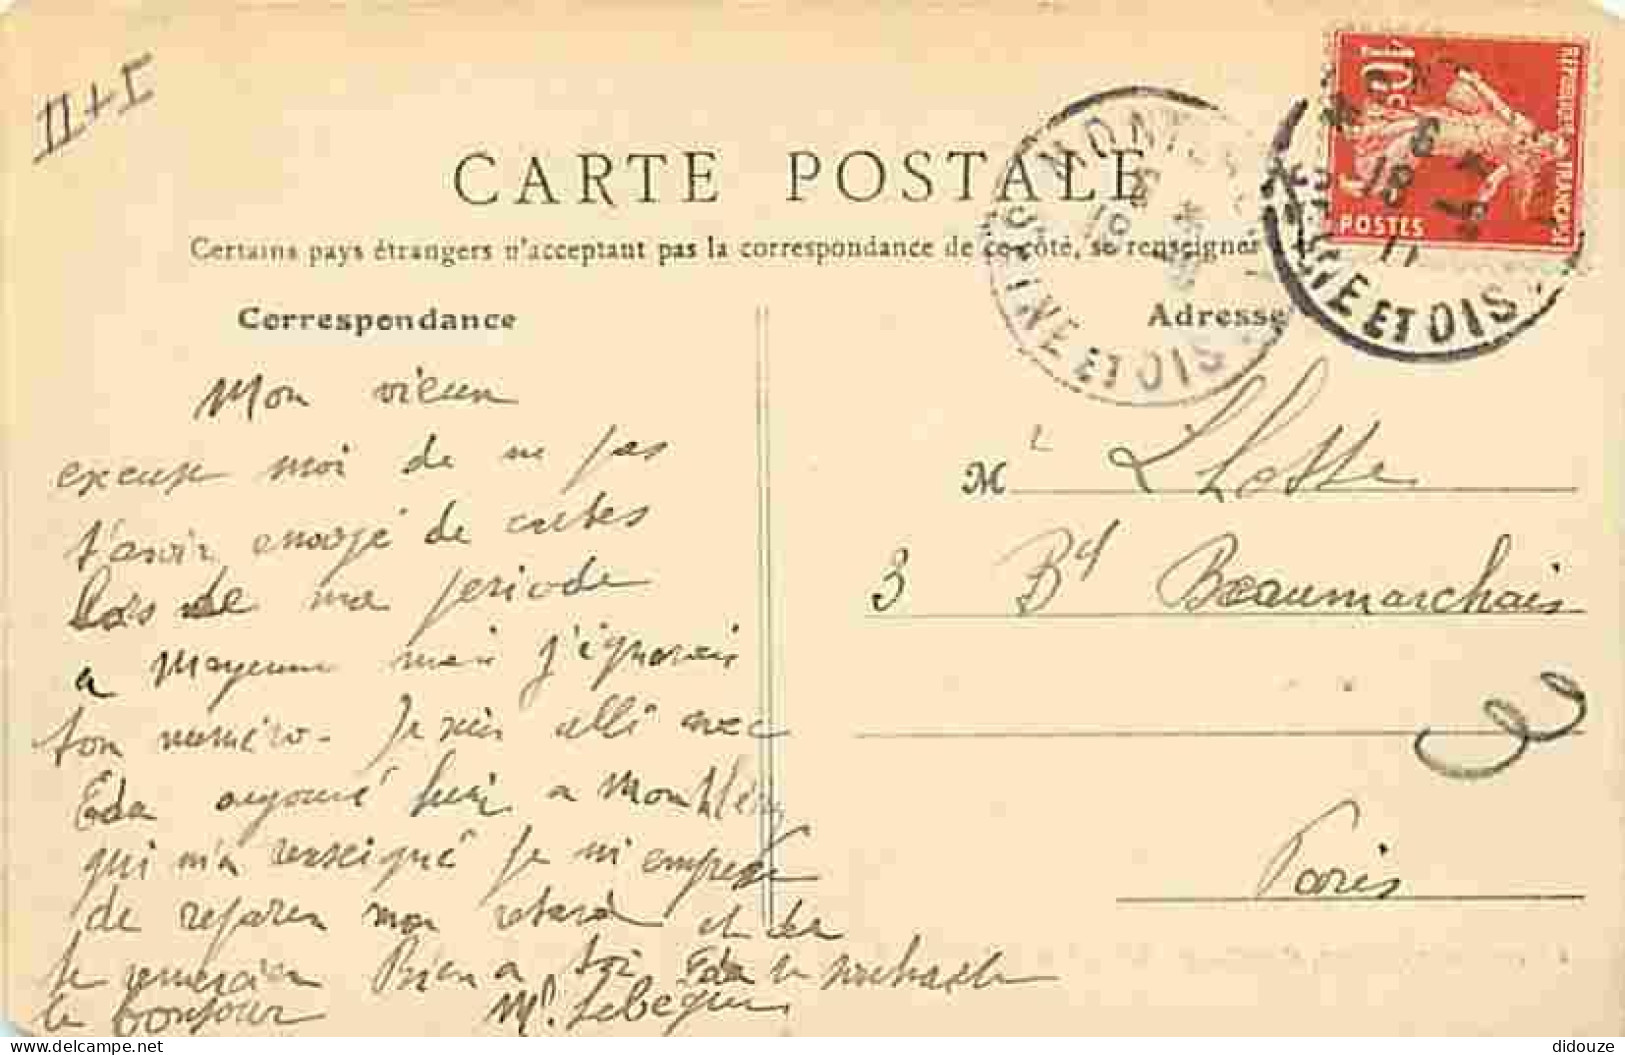 II+I
CARTE POSTALE
Certains pays étrangers n'acceptant pas la correspondance de ce côté, se renseigner
Correspondance
Adresse
10c
POSTES
REPUBLIQUE FRANÇAISE
SEINE ET OIS
18
11
SEINE ET OIS
Mon vieux
excuse moi de ne pas
t'avoir envoyé de cartes
lors de ma periode
a Mayenne mais j'ignorais
ton numéro - Je suis allé avec
Eda aujourd'hui a Monthléry
qui m'a renseigné je m'empresse
de reparer mon retard et de
te remercier Bien a toi Eda te souhaite
le bonjour Mel. Lebegue
M L Lhotte
3 Bd Beaumarchais
Paris
delcampe.net
didouze